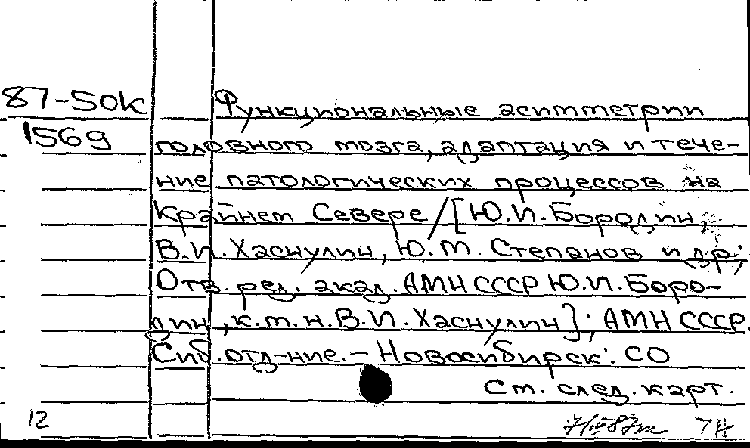 87-50к
1569
Функциональные асимметрии
головного мозга, адаптация и тече-
ние патологических процессов на
Крайнем Севере / [Ю.И. Бородин,
В.И. Хаснулин, Ю.М. Степанов и др.;
Отв. ред. акад. АМН СССР Ю.И. Боро-
дин, к.м.н. В.И. Хаснулин]; АМН СССР.
Сиб. отд-ние. – Новосибирск: СО
См. след. карт.
12